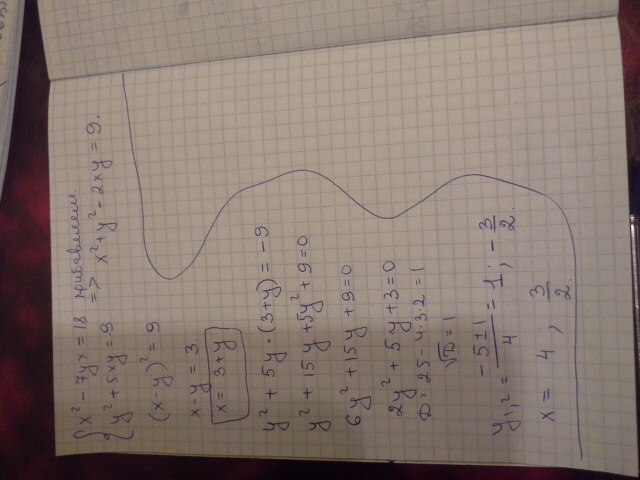 x² - 7yx = 18 прибавляем.
y² + 5xy = -9 => x² + y² - 2xy = 9.
(x-y)² = 9
x - y = 3
x = 3 + y
y² + 5y · (3+y) = -9
y² + 15y + 5y² + 9 = 0
6y² + 15y + 9 = 0
2y² + 5y + 3 = 0
D = 25 - 4·3·2 = 1
√D = 1
y₁,₂ = (-5±1)/4 = 1; -3/2.
x = 4; 3/2.